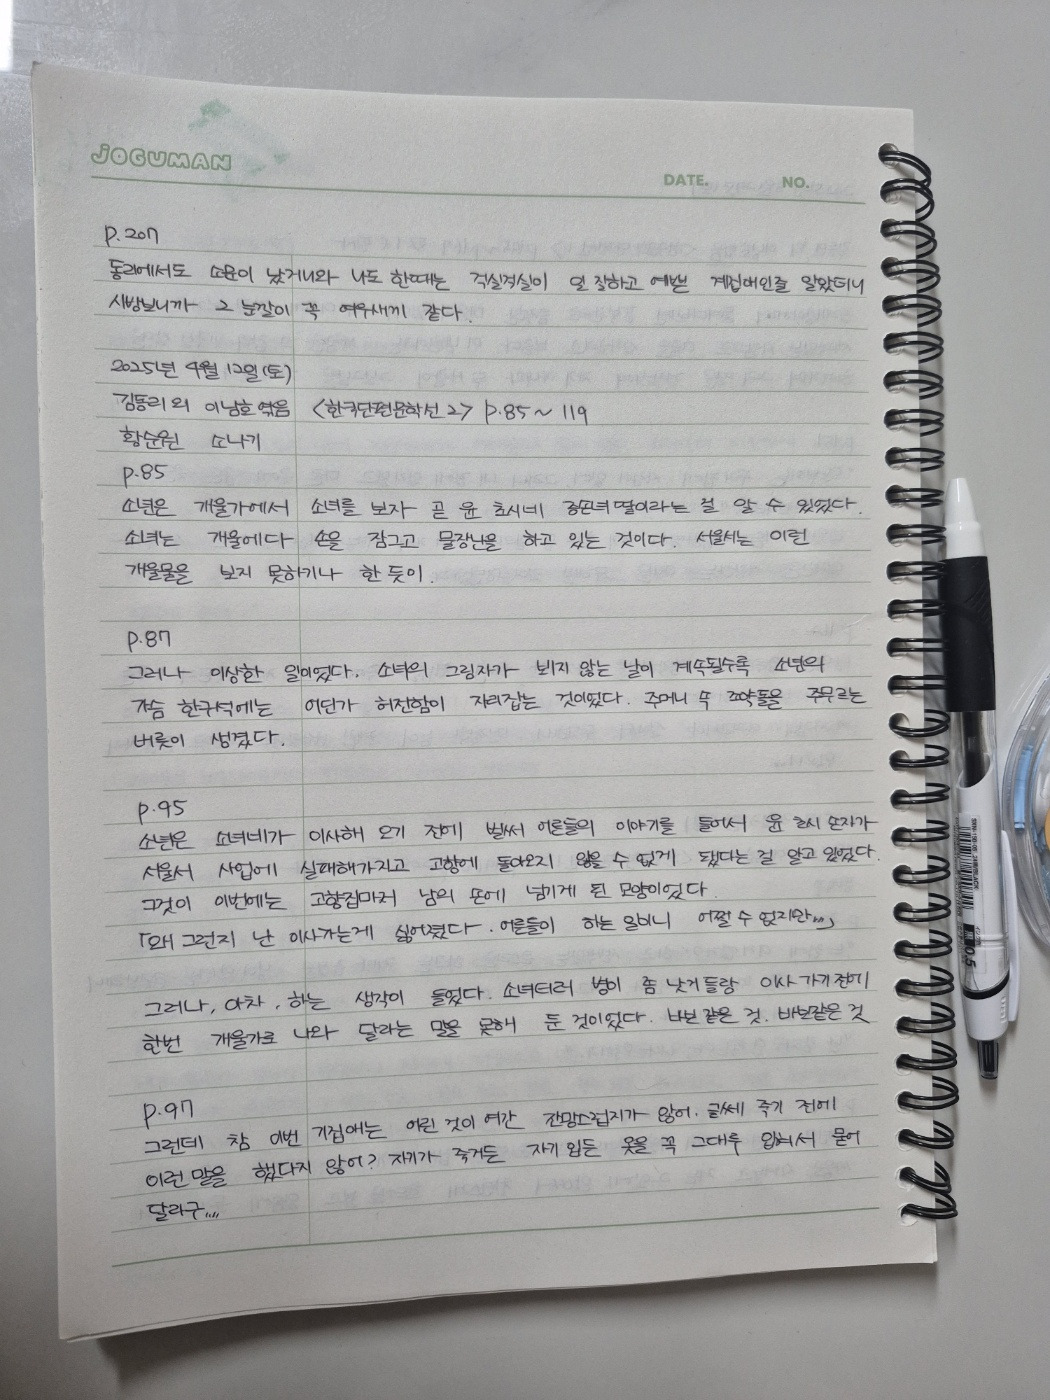 JOGUMAN
DATE. NO.
p.207
동리에서도 소문이 났거니와 나도 한때는 걱실걱실이 일 잘하고 예쁜 계집애인줄 알았더니
시방보니까 그 눈깔이 꼭 여우새끼 같다.
2025년 4월 12일(토)
김동리 외 이남호 엮음 <한국단편문학선 2> p.85 ~ 119
황순원 소나기
p.85
소년은 개울가에서 소녀를 보자 곧 윤 초시네 증손녀딸이라는 걸 알 수 있었다.
소녀는 개울에다 손을 잠그고 물장난을 하고 있는 것이다. 서울서는 이런
개울물을 보지 못하기나 한 듯이.
p.87
그러나 이상한 일이었다. 소녀의 그림자가 뵈지 않는 날이 계속될수록 소년의
가슴 한구석에는 어딘가 허전함이 자리잡는 것이었다. 주머니 속 조약돌을 주무르는
버릇이 생겼다.
p.95
소년은 소녀네가 이사해 오기 전에 벌써 어른들의 이야기를 들어서 윤 초시 손자가
서울서 사업에 실패해가지고 고향에 돌아오지 않을 수 없게 됐다는 걸 알고 있었다.
그것이 이번에는 고향집마저 남의 손에 넘기게 된 모양이었다.
「왜 그런지 난 이사가는게 싫어졌다. 어른들이 하는 일이니 어쩔 수 없지만...」
그러나, 아차, 하는 생각이 들었다. 소녀더러 병이 좀 낫거들랑 이사 가기 전에
한번 개울가로 나와 달라는 말을 못해 둔 것이었다. 바보 같은 것. 바보같은 것
p.97
그런데 참 이번 기집애는 어린 것이 여간 잔망스럽지가 않어. 글쎄 죽기 전에
이런 말을 했다지 않어? 자기가 죽거든 자기 입든 옷을 꼭 그대루 입혀서 묻어
달라구....
0.5